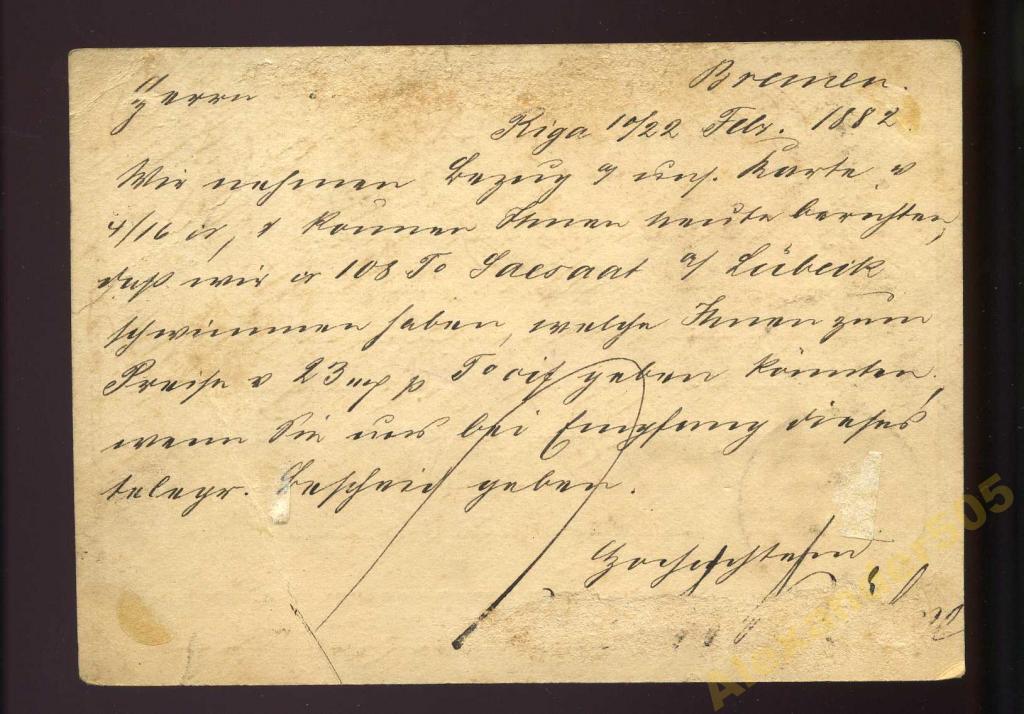 Bremen.
Herrn
Riga 10/22 Febr. 1882
Wir nehmen Bezug a/ uns. Karte v
4/16 cr, & können Ihnen heute berichten,
daß wir cr 108 To Saesaat a/ Lübeck
schwimmen haben, welche Ihnen zum
Preise v 23 p To cif geben könnten,
wenn Sie uns bei Empfang dieses
telegr. Bescheid geben.
Hochachtend
Alexander505